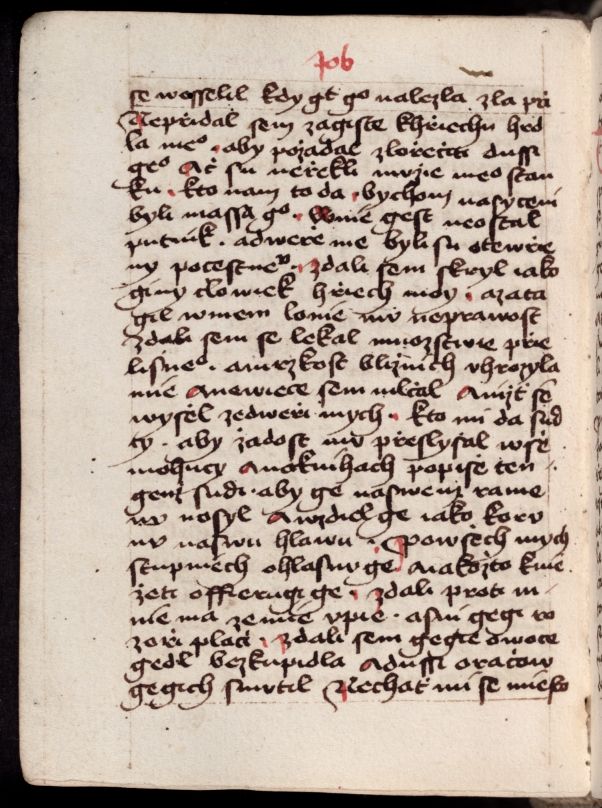 Job
se wesselil kdy gt go nalezla zla při
Nepřidal sem zagiste khřiechu hrd
la me° . aby požadal zlořečiti dussi
ge° Ač su neřekli mužie me° stan
ku . kto nam to da . bychom nasyceni
byli massa g° . Wnie gest neostal
putnik . adweře me byli su otewře
ny pocestne° . zdali sem skryl iako
giny clowiek hřiech moy . azata
gil wmem lonie mu neprawost
Zdali sem se lekal mnozstwie pře
lisne° . amrzkost bližnich vhrozyla
mie Anewiece sem mlčal Anižt se
wyšel zedweři mych . kto mi da sud
ty . aby žadost mu přeslyšal wše
mohucy Anaknihach popiše ten
genž sudi . aby ge naswem rame
nu nosyl Awzdiel ge iako koru
nu naswu hlawu . Powšech mych
stupniech ohlasugi ge Aiakožto knie
žeti offierugi ge . zdali proti m
nie ma zemie vpie . asni gegi ro
zoři plači . zdali sem gegie owoce
gedl bezkupidla Adussi oračow
gegich smutil Nechať mi se miesto